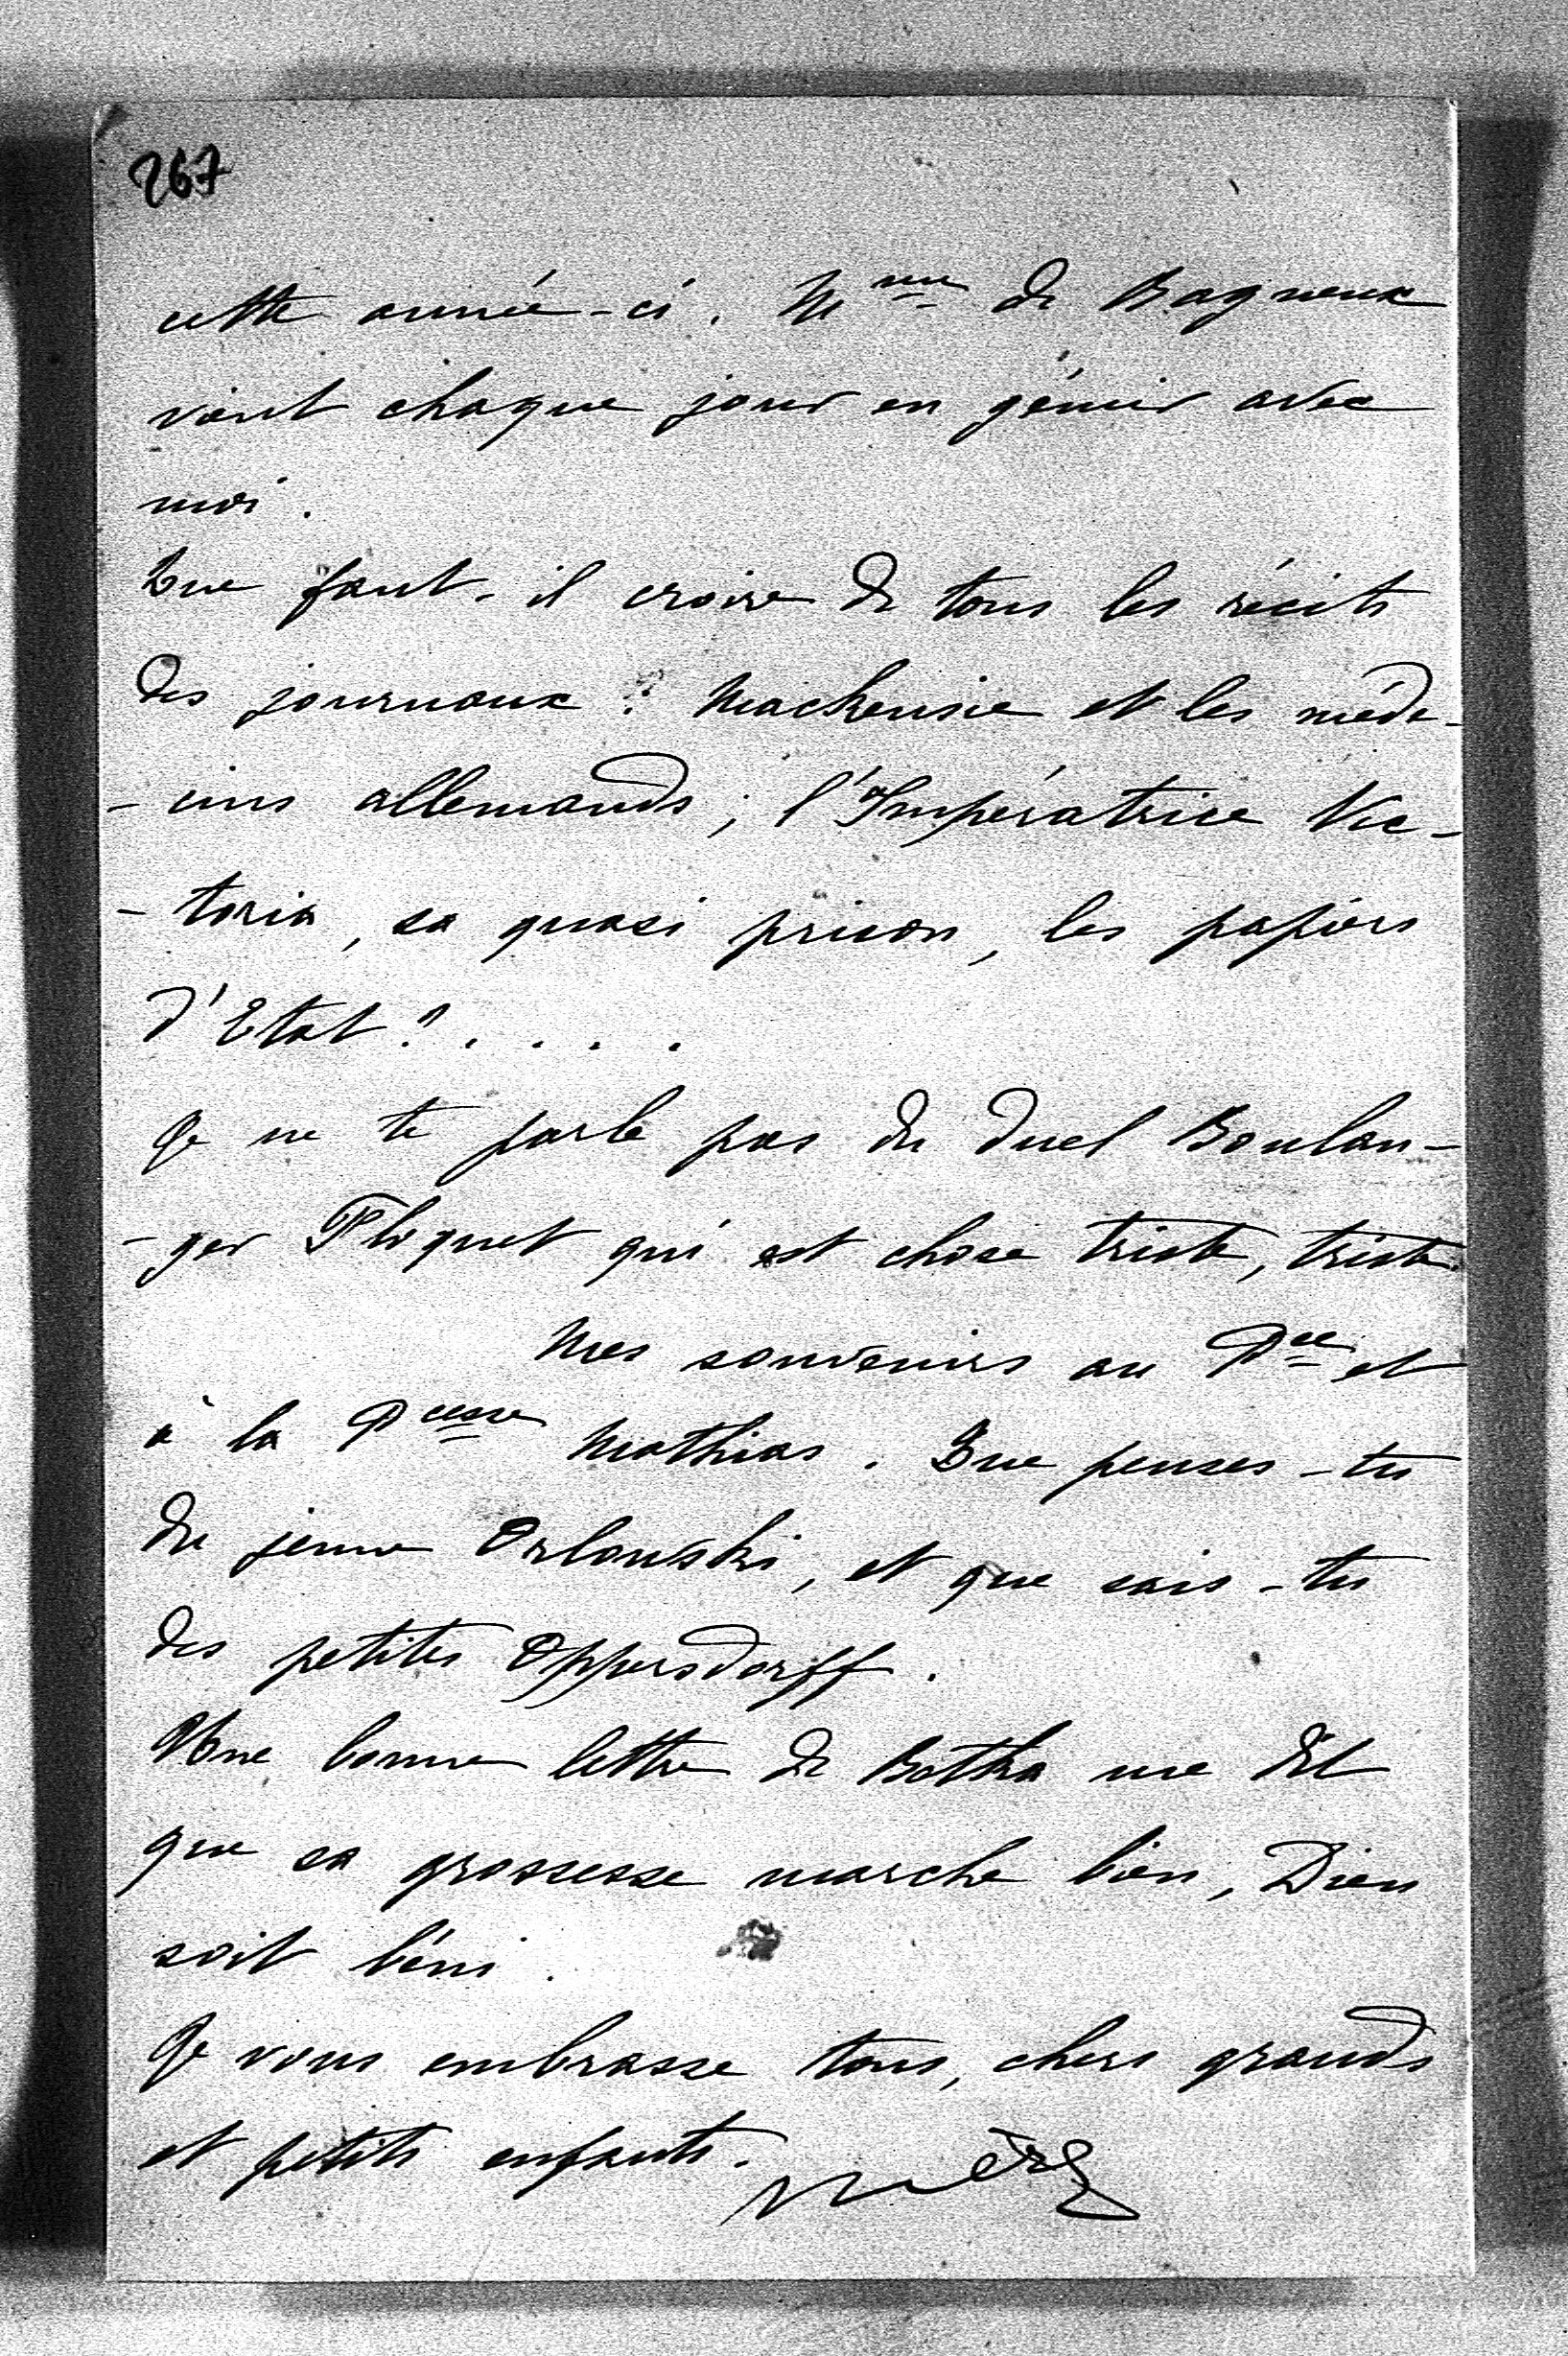 267
cette année-ci. Mme de Bagneux
vient chaque jour en gémir avec
moi.
Que faut-il croire de tous les récits
des journaux? Mackensie et les méde-
-cins allemands; l'Impératrice Vic-
-toria, sa quasi prison, les papiers
d'Etat?....
Je ne te parle pas du duel Boulan-
-ger Floquet qui est chose triste, triste.
Mes souvenirs au Pce et
à la Pcesse Mathias. Que penses-tu
du jeune Orlowski, et que sais-tu
des petites Oppersdorff.
Une bonne lettre de Botka me dit
que sa grossesse marche bien, Dieu
soit béni.
Je vous embrasse tous, chers grands
et petits enfants. Mère